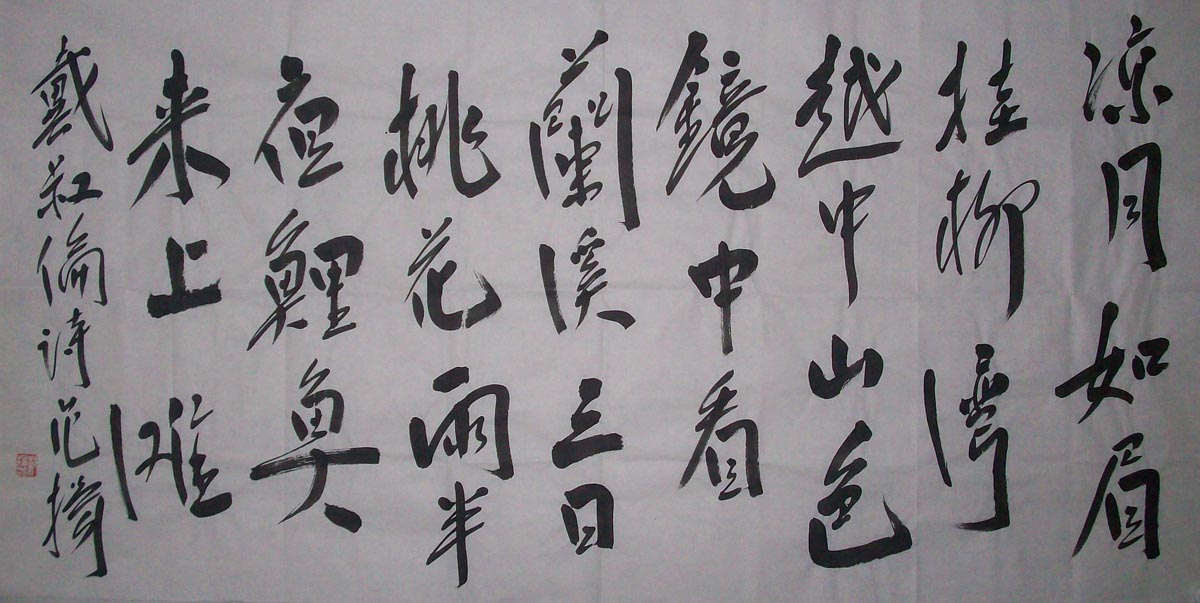 凉月如眉
挂柳湾
越中山色
鏡中看
蘭溪三日
桃花雨半
夜鯉魚
来上滩
戴叔倫诗范